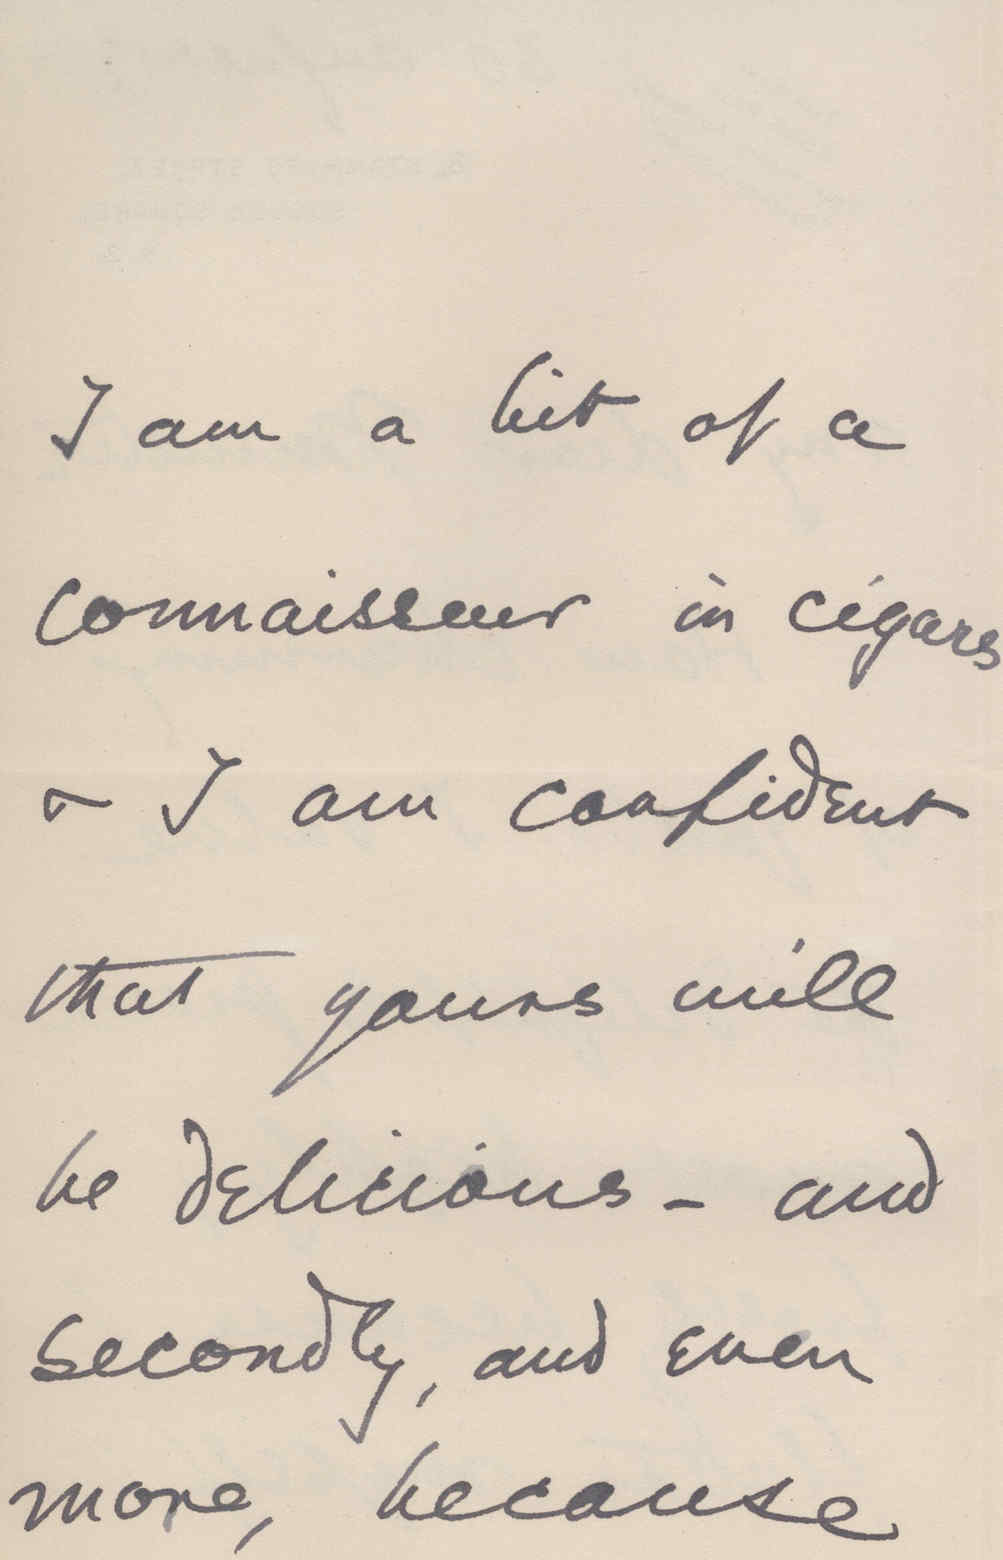 I am a bit of a
connaisseur in cigars
& I am confident
that yours will
be delicious - and
secondly, and even
more, because